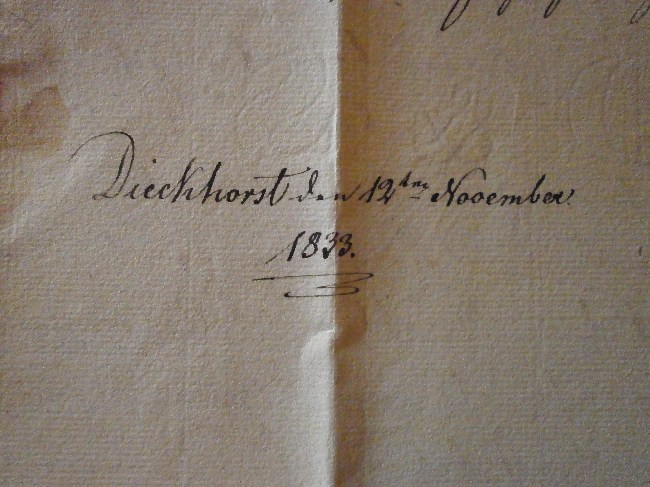 Dieckhorst den 12ten November
1833.